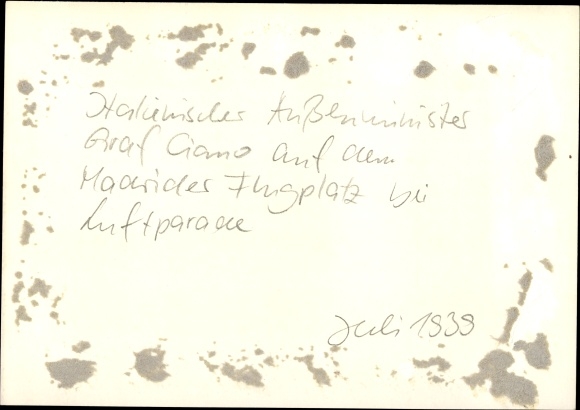 Italienischer Außenminister
Graf Ciano auf dem
Madrider Flugplatz bei
Luftparade
Juli 1939